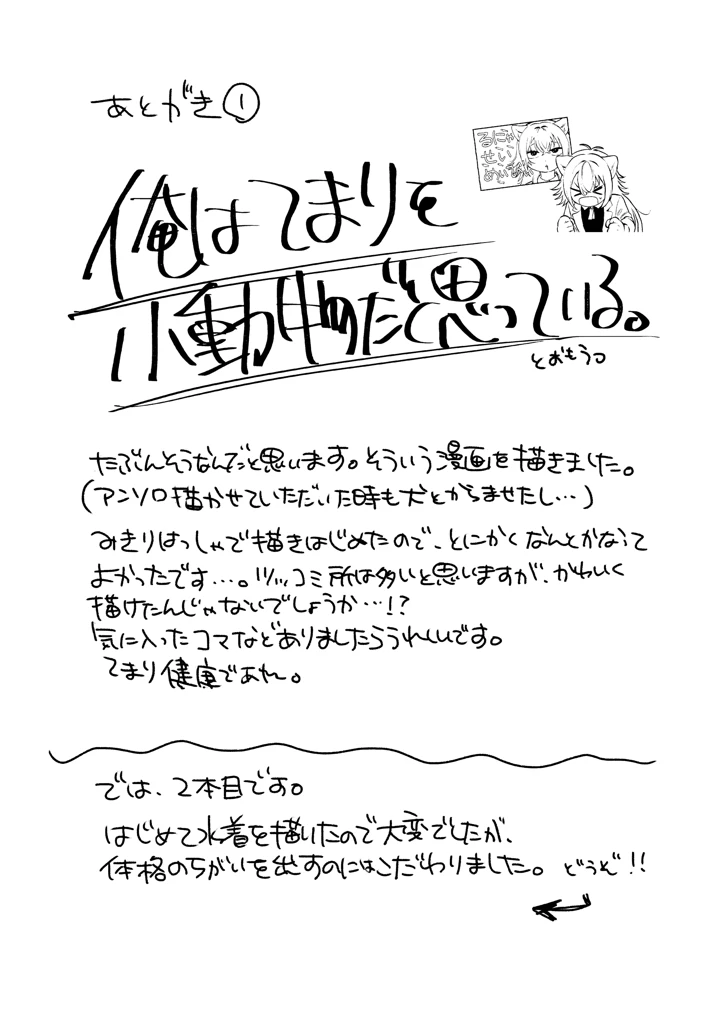 あとがき①
俺はてまりを
小動物だと思っている。
とおもうっ
たぶんそうなんだと思います。そういう漫画を描きました。
(アンソロ描かせていただいた時も犬とからませたし…)
みきりはっしゃで描きはじめたので、とにかくなんとかなって
よかったです…。ツッコミ所は多いと思いますが、かわいく
描けたんじゃないでしょうか…!?
気に入ったコマなどありましたらうれしいです。
てまり健康であれ。
では、2本目です。
はじめて水着を描いたので大変でしたが、
体格のちがいを出すのにはこだわりました。どうぞ!!